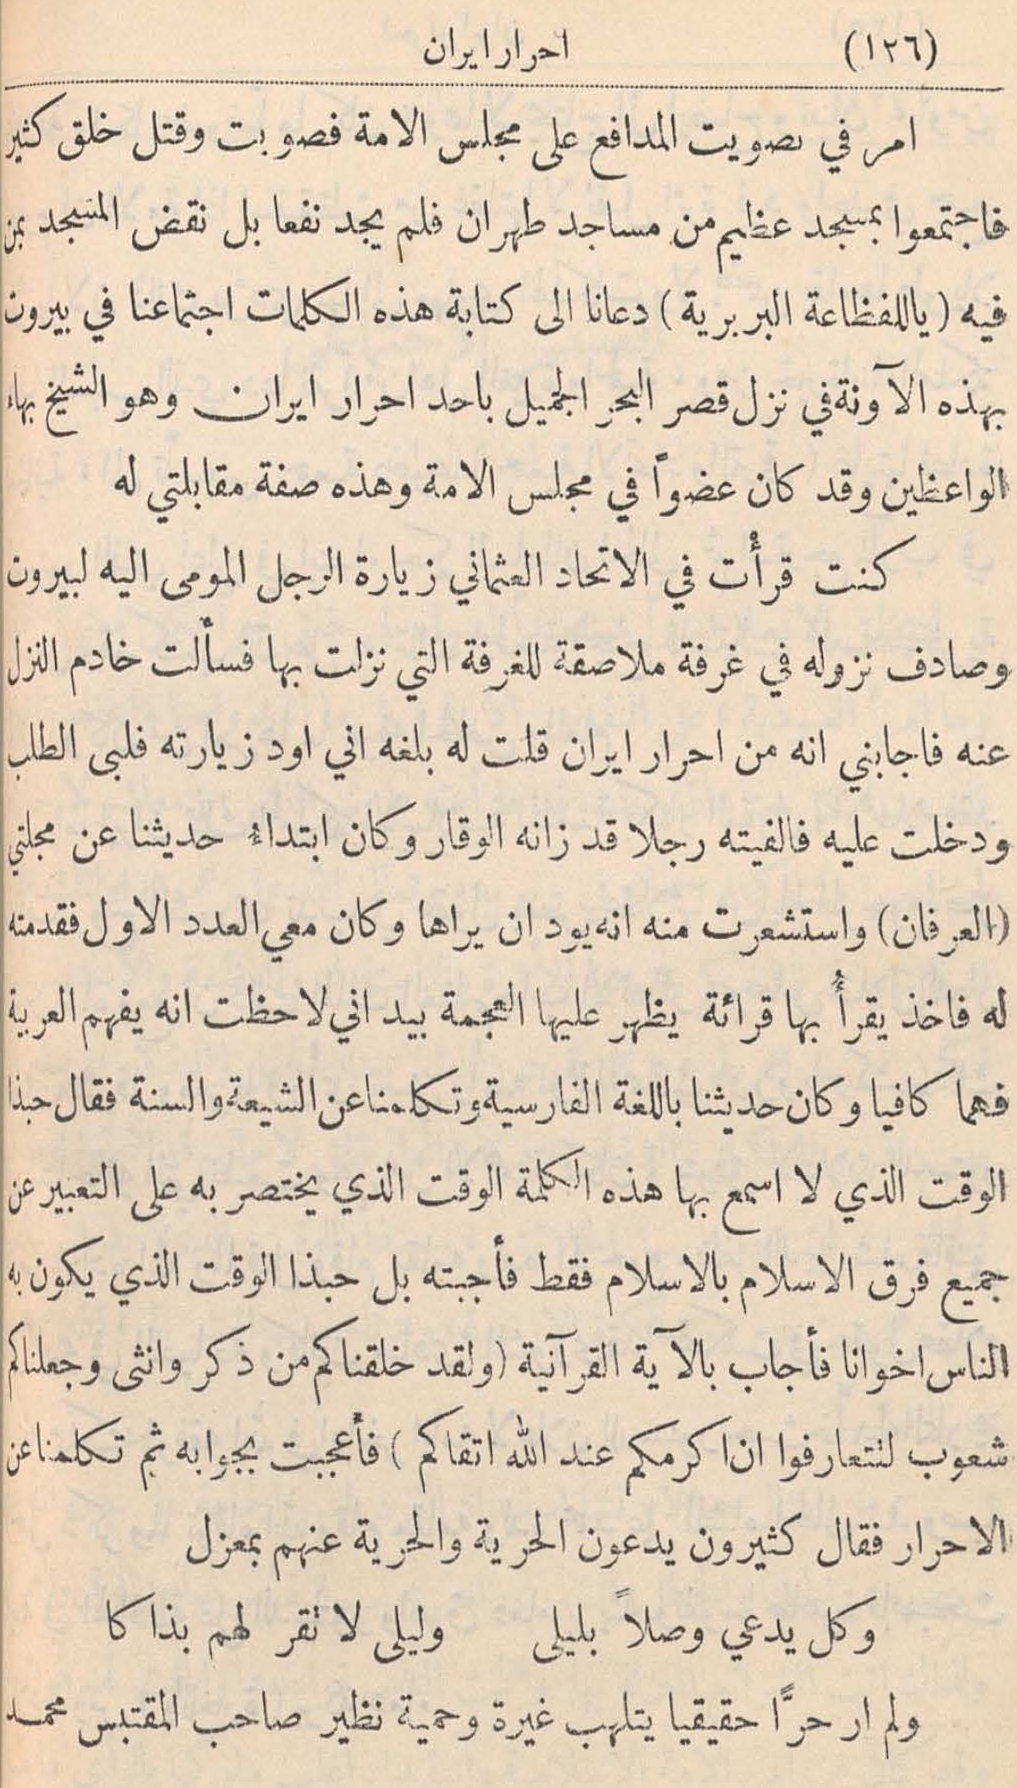 (١٢٦) احرار ايران
امر في تصويت المدافع على مجلس الامة فصوبت وقتل خلق كثير
فاجتمعوا بمسجد عظيم من مساجد طهران فلم يجد نفعا بل نقض المسجد بمن
فيه (ياللفظاعة البربرية) دعانا الى كتابة هذه الكلمات اجتماعنا في بيروت
بهذه الآونة في نزل قصر البحر الجميل باحد احرار ايران وهو الشيخ بهاء
الواعظين وقد كان عضواً في مجلس الامة وهذه صفة مقابلتي له
كنت قرأت في الاتحاد العثماني زيارة الرجل المومى اليه لبيروت
وصادف نزوله في غرفة ملاصقة للغرفة التي نزلت بها فسألت خادم النزل
عنه فاجابني انه من احرار ايران قلت له بلغه اني اود زيارته فلبى الطلب
ودخلت عليه فالفيته رجلا قد زانه الوقار وكان ابتداء حديثنا عن مجلتي
(العرفان) واستشعرت منه انه يود ان يراها وكان معي العدد الاول فقدمته
له فاخذ يقرأ بها قرائة يظهر عليها العجمة بيد اني لاحظت انه يفهم العربية
فهما كافيا وكان حديثنا باللغة الفارسية وتكلمنا عن الشيعة والسنة فقال حبذا
الوقت الذي لا اسمع بها هذه الكلمة الوقت الذي يختصر به على التعبير عن
جميع فرق الاسلام بالاسلام فقط فأجبته بل حبذا الوقت الذي يكون به
الناس اخوانا فأجاب بالآية القرآنية (ولقد خلقناكم من ذكر وانثى وجعلناكم
شعوب لتتعارفوا ان اكرمكم عند الله اتقاكم) فأعجبت بجوابه ثم تكلمنا عن
الاحرار فقال كثيرون يدعون الحرية والحرية عنهم بمعزل
وكل يدعي وصلاً بليلى وليلى لا تقر لهم بذاكا
ولم ار حرًّا حقيقيا يتلهب غيرة وحمية نظير صاحب المقتبس محمد